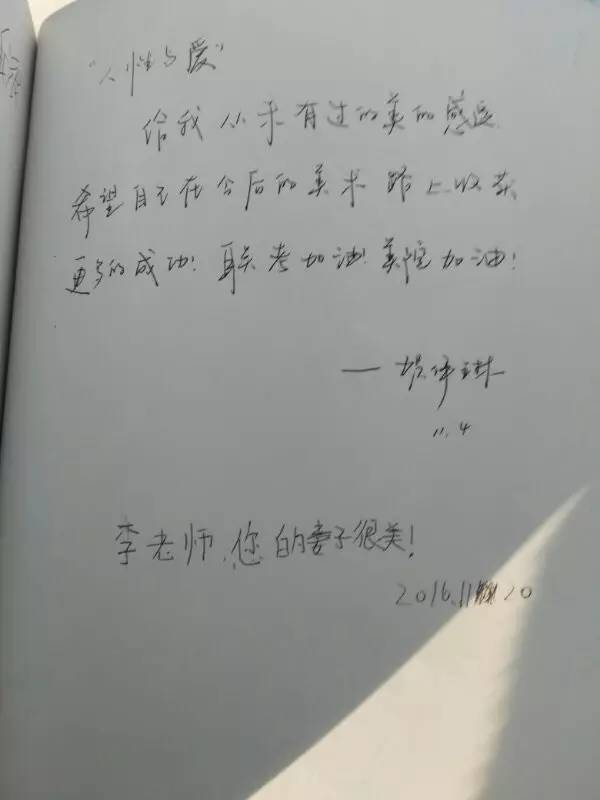 “人性与爱”
给我从未有过的美的感悟
希望自己在今后的美术路上收获
更多的成功！联考加油！美院加油！
11.4
李老师，您的妻子很美！
2016.11 20